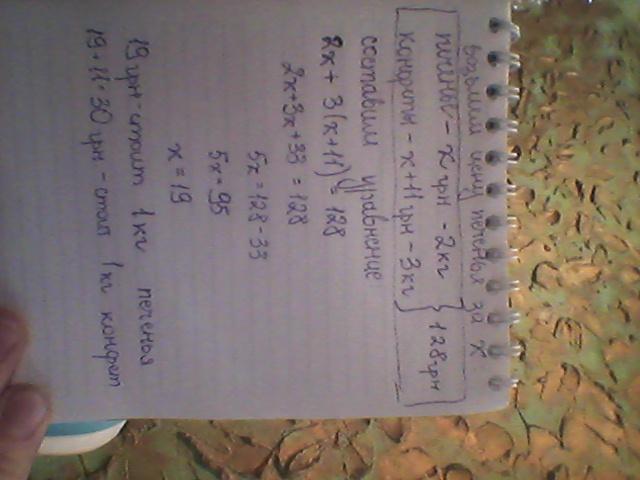 возьмем цену печенья за x
печенье - x грн - 2кг } 128грн
конфеты - x+11 грн - 3кг
составим уравнение
2x + 3(x+11) = 128
2x+3x+33 = 128
5x = 128-33
5x = 95
x = 19
19 грн - стоит 1 кг печенья
19+11=30 грн - стоит 1 кг конфет